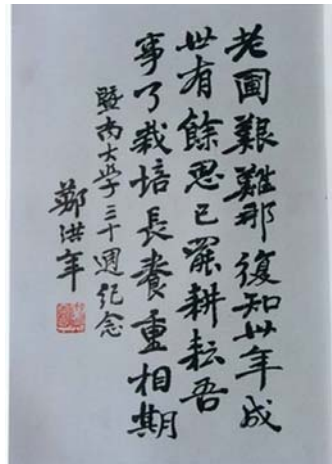 老圃艱難那復知卅年成
世有餘思已罷耕耘吾
事了栽培長養重相期
暨南大學三十週紀念
鄭洪年